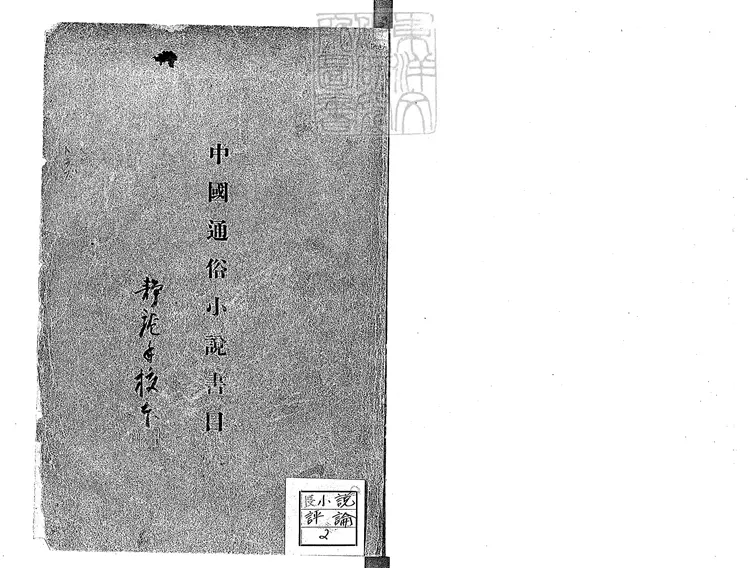 中國通俗小說書目
靜龍手校本
小說
評論
2